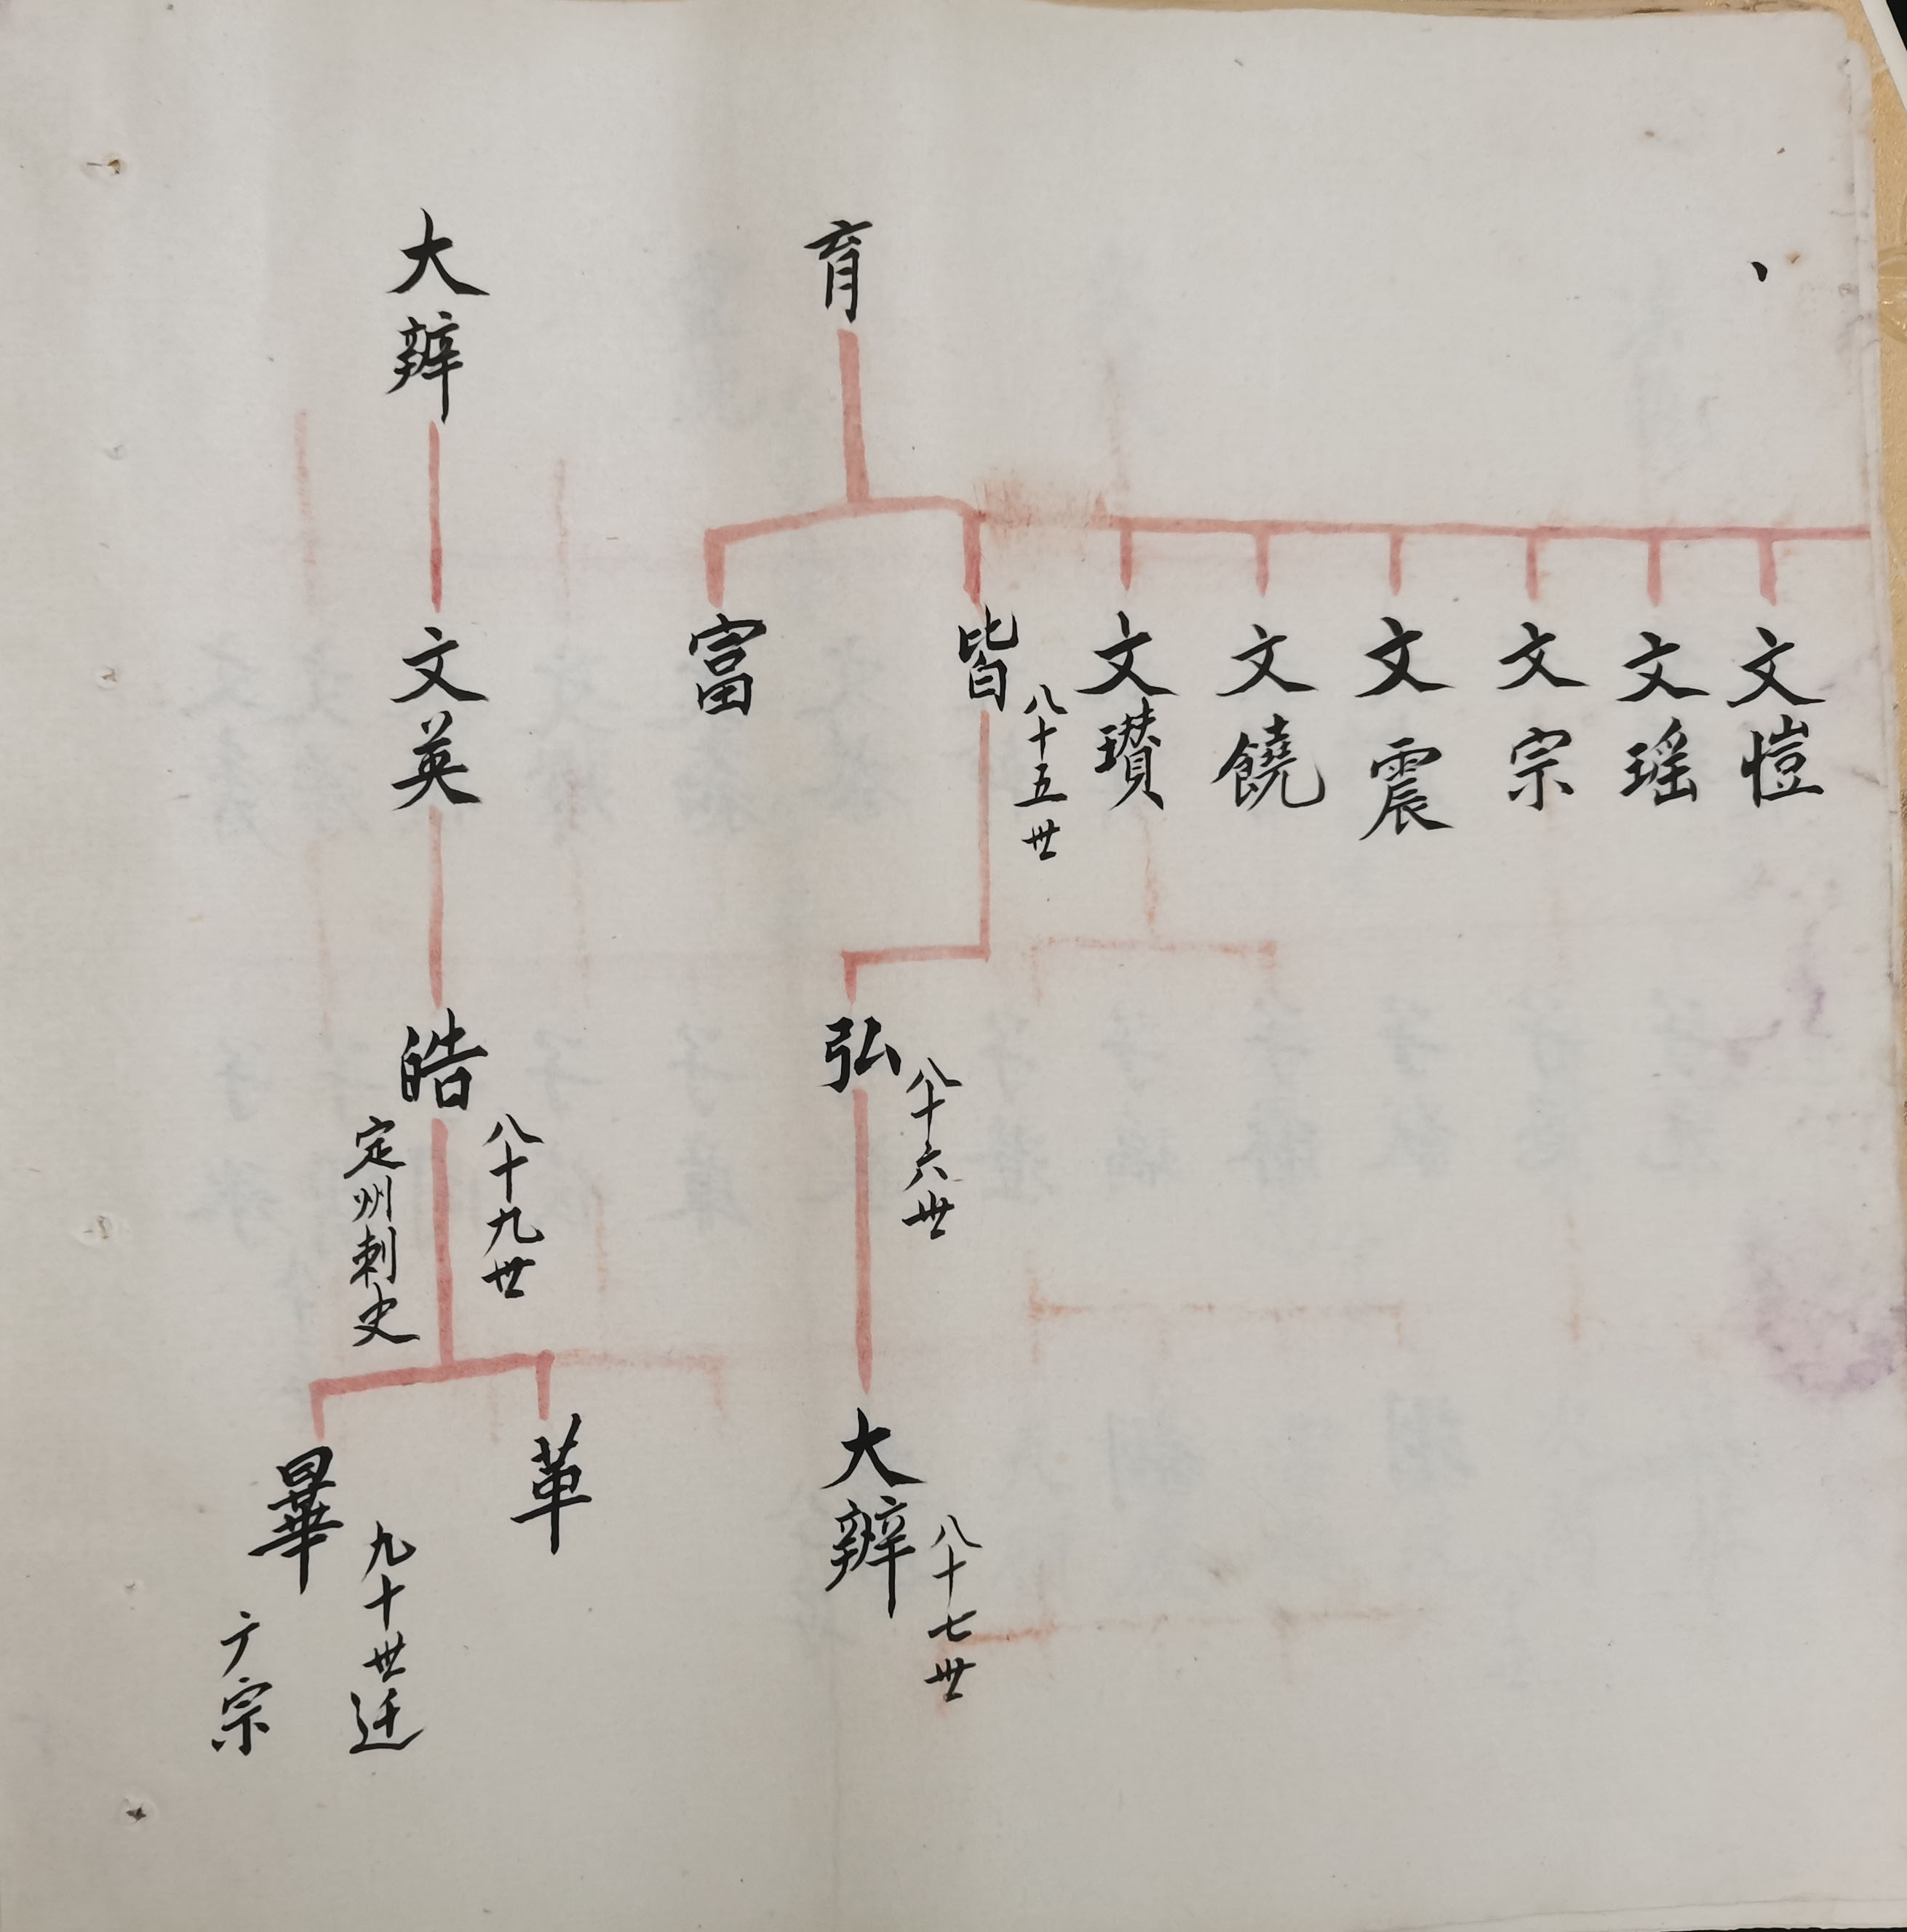 文愷
文瑶
文宗
文震
文饒
文瓚
育
皆
八十五世
富
弘
八十六世
大辨
八十七世
大辨
文英
皓
八十九世
定州刺史
革
畢
九十世迁
广宗